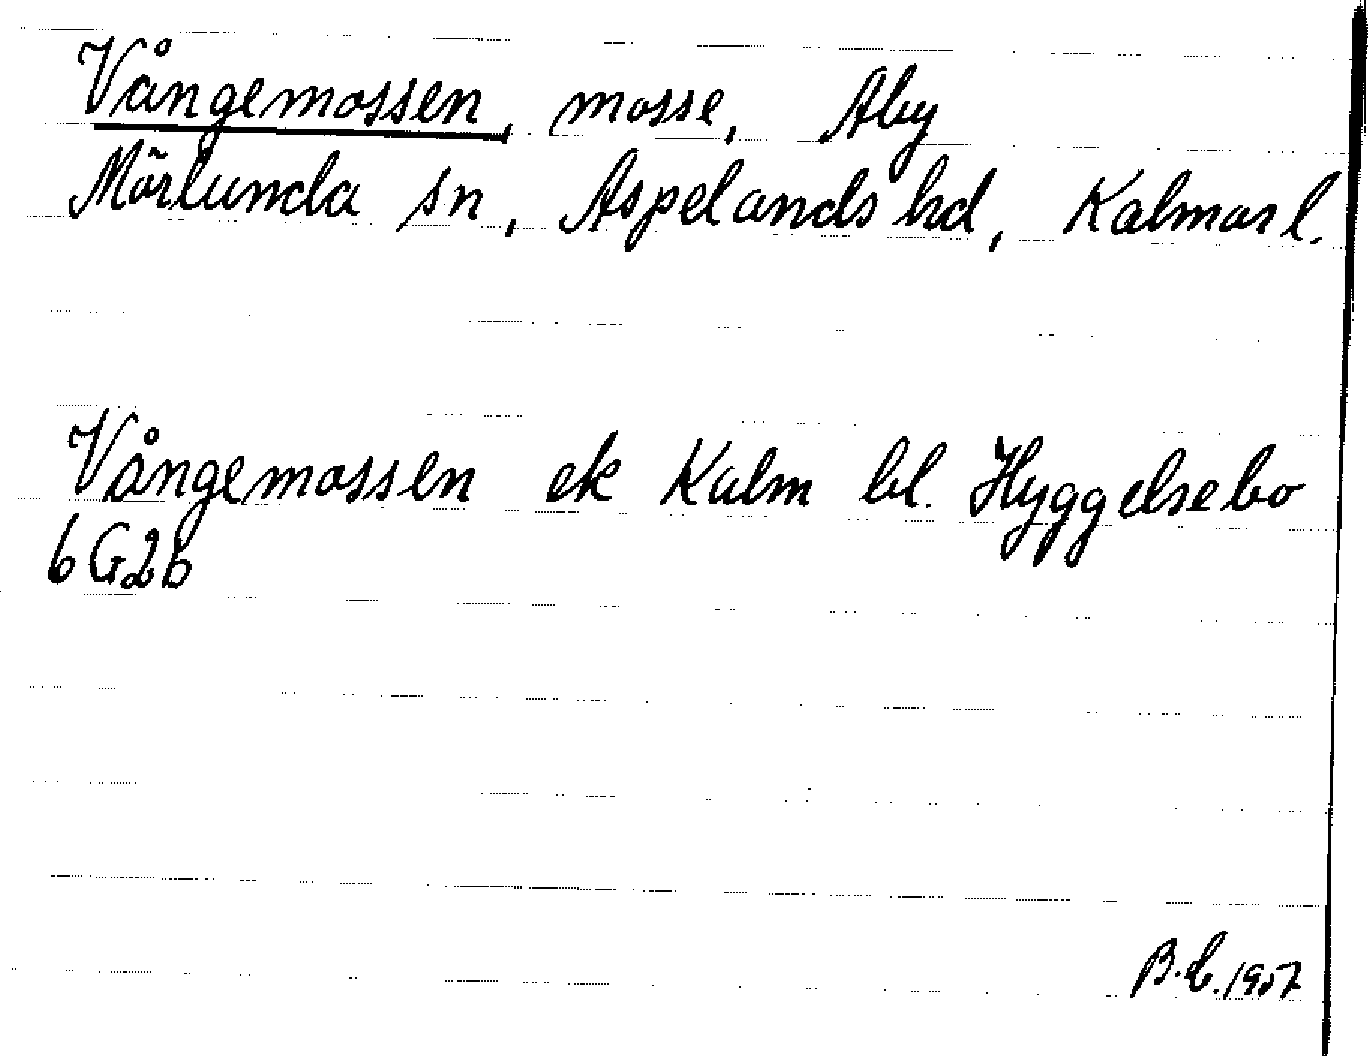 Vångemossen, mosse, Aby
Mörlunda sn, Aspelands hd, Kalmar l.
Vångemossen ek Kalm bl. Hyggelsebo
6G2b
B.C. 1957